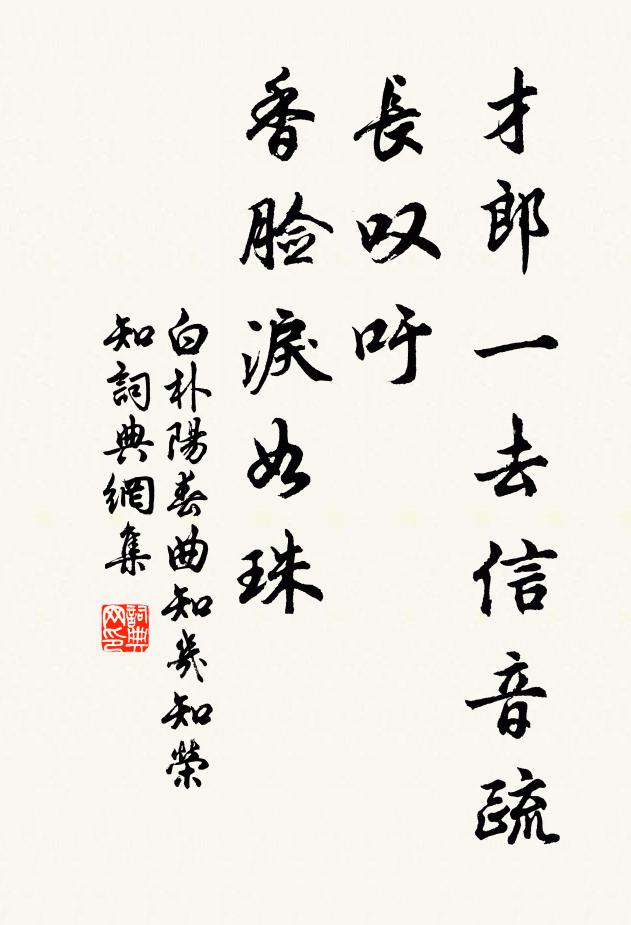 才郎一去信音疏
長叹吁
香脸淚如珠
白朴陽春曲知幾知榮
知詞典網集
詞典网印